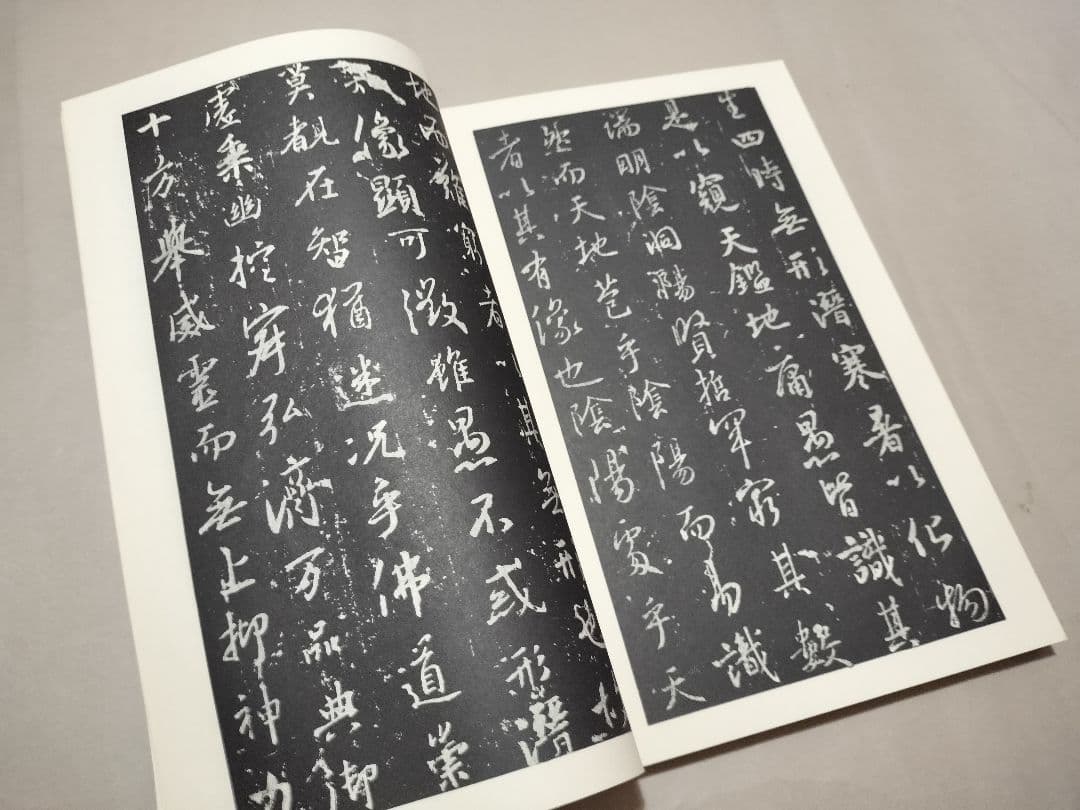 生四時無形潛寒暑以化物
是以窺天鑑地庸愚皆識其
端明陰洞陽賢哲罕窮其數
然而天地苞乎陰陽而易識
者以其有像也陰陽處乎天
地而難窮者以其無形也故
像顯可徵雖愚不惑形潛
莫覩在智猶迷況乎佛道崇
虛乘幽控寂弘濟万品典御
十方舉威靈而無上抑神力